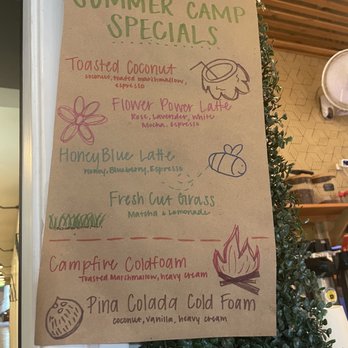 SUMMER CAMP
SPECIALS
Toasted Coconut
coconut, toasted marshmallow,
espresso
Flower Power Latte
Rose, Lavender, White
Mocha, Espresso
HoneyBlue Latte
Honey, Blueberry, Espresso
Fresh Cut Grass
Matcha & Lemonade
Campfire Coldfoam
Toasted Marshmallow, heavy cream
Pina Colada Cold Foam
coconut, vanilla, heavy cream